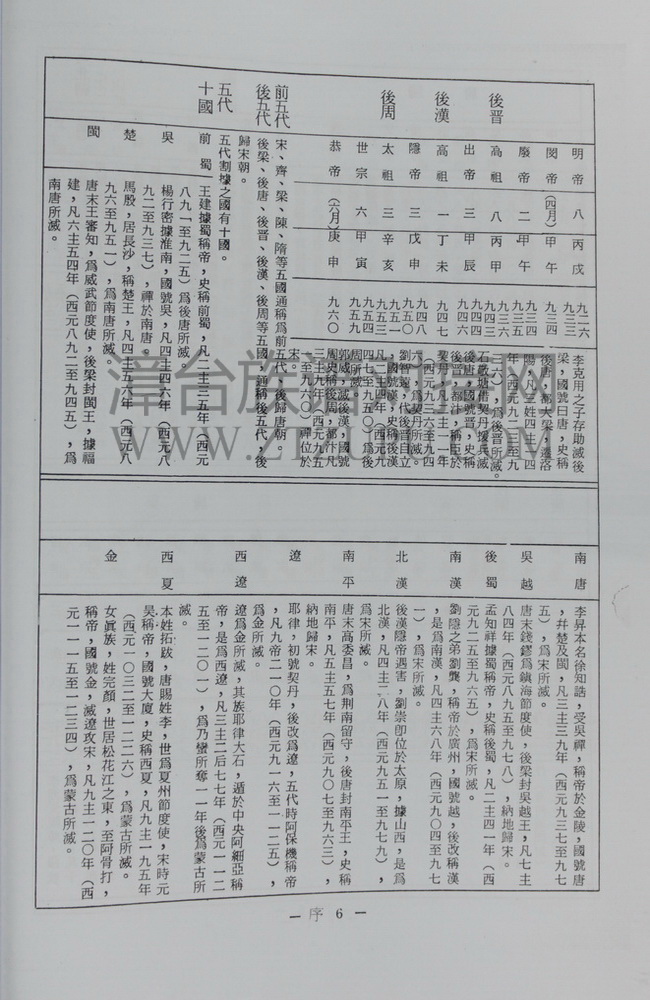 明帝 八 丙戌 九二六 九三三
閔帝 (四月) 甲午 九三四
廢帝 二 甲午 九三四 九三五
李克用之子存勗滅後
梁,國號曰唐,史稱
後唐,都大梁,遷洛
陽,凡三姓四主一四
年(西元九二三至九
三六),為後晉所滅。
後晉
高祖 八 丙甲 九三六 九四三
出帝 三 甲辰 九四四 九四六
石敬塘借契丹援兵滅
後唐,國號晉,史稱
後晉,都汴,稱臣於
契丹,凡二主一一年
(西元九三六至九四
六),為契丹所滅。
後漢
高祖 一 丁未 九四七
隱帝 三 戊申 九四八 九五〇
劉智遠,代後晉自立
,國號漢,史稱後漢
凡二主四年(西元九
四七至九五〇)為後
周所滅。
後周
太祖 三 辛亥 九五一 九五三
世宗 六 甲寅 九五四 九五九
恭帝 (六月) 庚申 九六〇
郭威,滅後漢,國號
周史稱後周,都汴凡
三主九年(西元九五
一至九六〇)禪位於
宋。
前五代
後五代
宋、齊、梁、陳、隋等五國通稱為前五代,後歸唐朝。
後梁、後唐、後晉、後漢、後周等五國,通稱後五代,後
歸宋朝。
五代
十國
五代割據之國有十國。
前蜀
王建據蜀稱帝,史稱前蜀,凡二主三五年(西元
八九一至九二五)為後唐所滅
吳
楊行密據淮南,國號吳,凡四主四六年(西元八
九二至九三七),禪於南唐
楚
馬殷,居長沙,稱楚王,凡四主五六年(西元八
九六至九五一),為南唐所滅
閩
唐末王審知,為威武節度使,後梁封閩王,據福
建,凡六主五四年(西元八九二至九四五),為
南唐所滅。
南唐
李昇本名徐知誥,受吳禪,稱帝於金陵,國號唐
,幷楚及閩,凡三主三九年(西元九三七至九七
五),為宋所滅。
吳越
唐末錢鏐為鎭海節度使,後梁封吳越王,凡七主
八四年(西元八九五至九七八),納地歸宋。
後蜀
孟知祥據蜀稱帝,史稱後蜀,凡二主四一年(西
元九二五至九六五),為宋所滅。
南漢
劉隱之弟劉龑,稱帝於廣州,國號越,後改稱漢
,是為南漢,凡四主六八年(西元九〇四至九七
一),為宋所滅。
北漢
後漢隱帝遇害,劉崇卽位於太原,據山西,是為
北漢,凡四主二八年(西元九五一至九七九),
為宋所滅。
南平
唐末高委昌,為荆南留守,後唐封南平王,史稱
南平,凡五主五七年(西元九〇七至九六三),
納地歸宋。
遼
耶律,初號契丹,後改為遼,五代時阿保機稱帝
,凡九帝二一〇年(西元九一六至一一二五),
為金所滅。
西遼
遼為金所滅,其族耶律大石,遁於中央阿細亞稱
帝,是為西遼,凡三主二后七七年(西元一一二
五至一二〇一),為乃蠻所奪一一年後為蒙古所
滅。
西夏
本姓拓跋,唐賜姓李,世為夏州節度使,宋時元
昊稱帝,國號大廈,史稱西夏,凡九主一九五年
(西元一〇三二至一二二六),為蒙古所滅。
金
女眞族,姓完顏,世居松花江之東,至阿骨打,
稱帝,國號金,滅遼攻宋,凡九主一二〇年(西
元一一一五至一二三四),為蒙古所滅。
— 序 6 —
WWW.ZTZUPU.COM